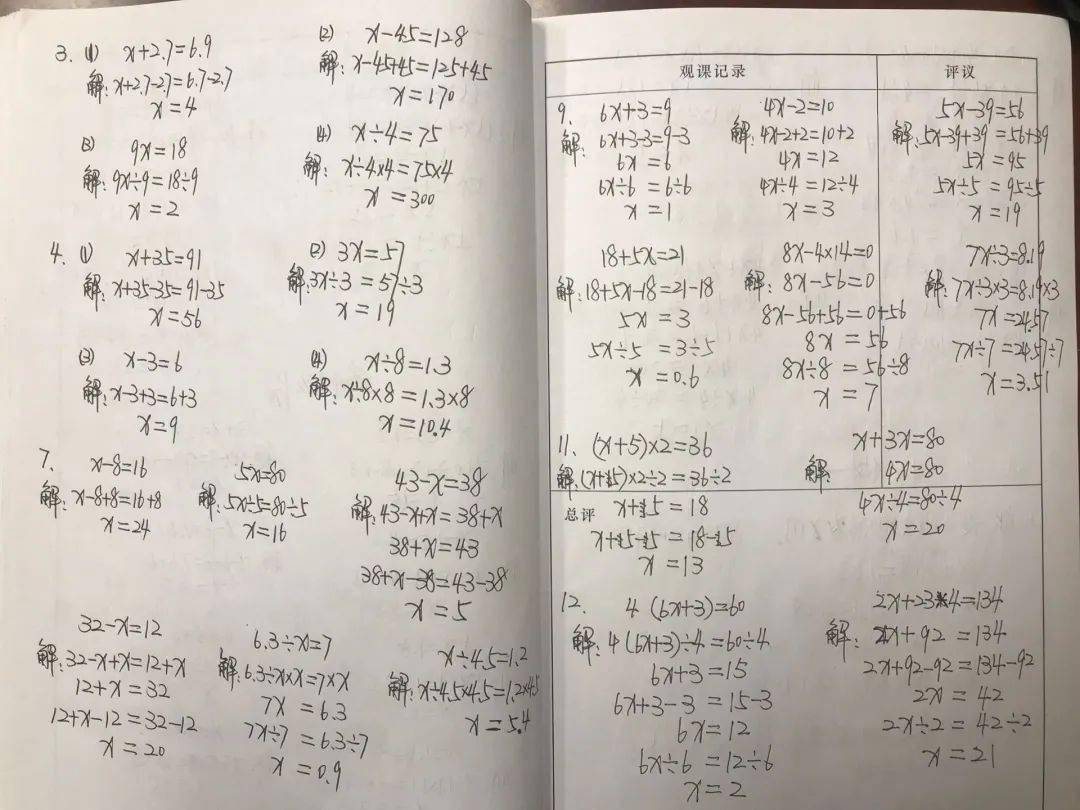 3. (1) x+2.7=6.9
解:x+2.7-2.7=6.7-2.7
x=4
(2) x-45=128
解:x-45+45=125+45
x=170
(3) 9x=18
解:9x÷9=18÷9
x=2
(4) x÷4=75
解:x÷4×4=75×4
x=300
4. (1) x+35=91
解:x+35-35=91-35
x=56
(2) 3x=57
解:3x÷3=57÷3
x=19
(3) x-3=6
解:x-3+3=6+3
x=9
(4) x÷8=1.3
解:x÷8×8=1.3×8
x=10.4
7. x-8=16
解:x-8+8=16+8
x=24
5x=80
解:5x÷5=80÷5
x=16
43-x=38
解:43-x+x=38+x
38+x=43
38+x-38=43-38
x=5
32-x=12
解:32-x+x=12+x
12+x=32
12+x-12=32-12
x=20
6.3÷x=7
解:6.3÷x×x=7×x
7x=6.3
7x÷7=6.3÷7
x=0.9
x÷4.5=1.2
解:x÷4.5×4.5=1.2×4.5
x=5.4
观课记录
评议
9. 6x+3=9
解:6x+3-3=9-3
6x=6
6x÷6=6÷6
x=1
4x-2=10
解:4x-2+2=10+2
4x=12
4x÷4=12÷4
x=3
5x-39=56
解:5x-39+39=56+39
5x=95
5x÷5=95÷5
x=19
18+5x=21
解:18+5x-18=21-18
5x=3
5x÷5=3÷5
x=0.6
8x-4×14=0
解:8x-56=0
8x-56+56=0+56
8x=56
8x÷8=56÷8
x=7
7x÷3=8.19
解:7x÷3×3=8.19×3
7x=24.57
7x÷7=24.57÷7
x=3.51
11. (x+5)×2=36
解:(x+5)×2÷2=36÷2
总评
x+5=18
x+5-5=18-5
x=13
x+3x=80
解:4x=80
4x÷4=80÷4
x=20
12. 4(6x+3)=60
解:4(6x+3)÷4=60÷4
6x+3=15
6x+3-3=15-3
6x=12
6x÷6=12÷6
x=2
2x+23×4=134
解:2x+92=134
2x+92-92=134-92
2x=42
2x÷2=42÷2
x=21